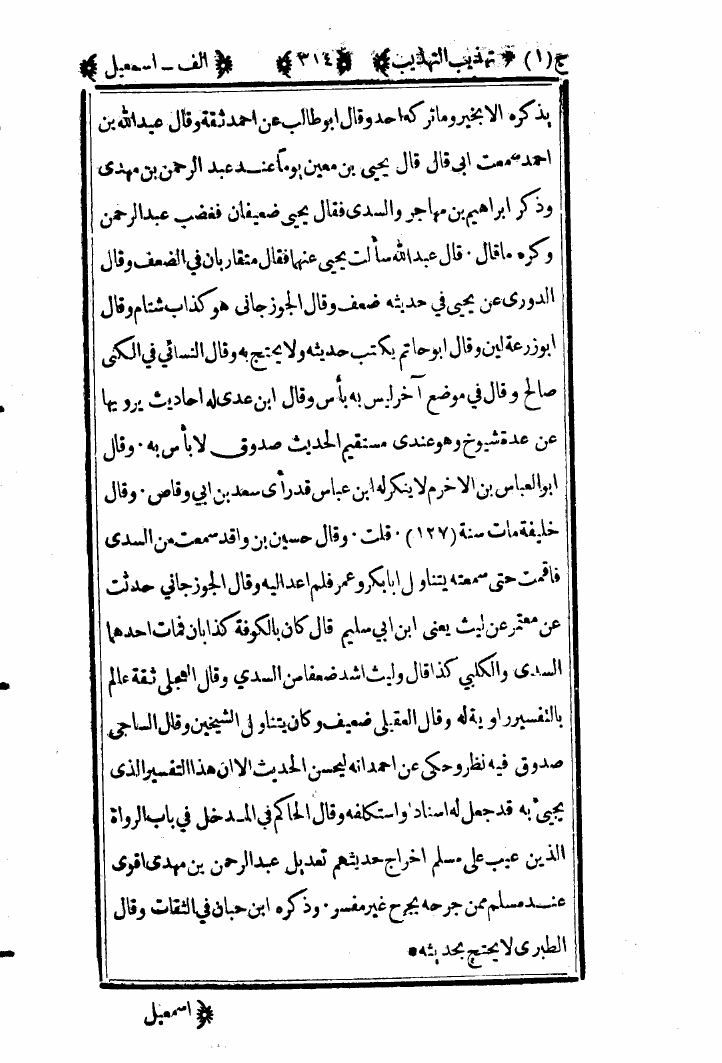 ج (١) ﴿ تهذيب التهذيب ﴾ ﴿ ٣١٤ ﴾ ﴿ الف - اسمعيل ﴾
يذكره الا بخير وما تركه احد وقال ابو طالب عن احمد ثقة وقال عبدالله بن
احمد سمعت ابى قال قال يحيى بن معين يوماً عند عبد الرحمن بن مهدى
وذكر ابراهيم بن مهاجر والسدى فقال يحيى ضعيفان فغضب عبدالرحمن
وكره ماقال ٠ قال عبدالله سألت يحيى عنهما فقال متقاربان في الضعف وقال
الدورى عن يحيى في حديثه ضعف وقال الجوزجانى هو كذاب شتام وقال
ابوزرعة لين وقال ابو حاتم يكتب حديثه ولا يحتج به وقال النسائي في الكنى
صالح وقال في موضع آخر ليس به بأس وقال ابن عدى له احاديث يرويها
عن عدة شيوخ وهو عندى مستقيم الحديث صدوق لا بأس به ٠ وقال
ابو العباس بن الاخرم لا ينكر له ابن عباس قد رأى سعد بن ابي وقاص ٠ وقال
خليفة مات سنة (١٢٧) ٠ قلت ٠ وقال حسين بن واقد سمعت من السدى
فاقمت حتى سمعته يتناول ابا بكر وعمر فلم اعد اليه وقال الجوزجاني حدثت
عن معتمر عن ليث يعنى ابن ابي سليم قال كان بالكوفة كذابان فمات احدهما
السدى والكلبي كذا قال وليث اشد ضعفا من السدي وقال العجلى ثقة عالم
بالتفسير راوية له وقال العقيلى ضعيف وكان يتناول الشيخين وقال الساجى
صدوق فيه نظر وحكى عن احمد انه ليحسن الحديث الا ان هذا التفسير الذى
يجيئ به قد جعل له اسنادا واستكلفه وقال الحاكم في المدخل في باب الرواة
الذين عيب على مسلم اخراج حديثهم تعديل عبدالرحمن بن مهدى اقوى
عند مسلم ممن جرحه بجرح غير مفسر ٠ وذكره ابن حبان في الثقات وقال
الطبرى لا يحتج بحديثه •
﴿ اسمعيل